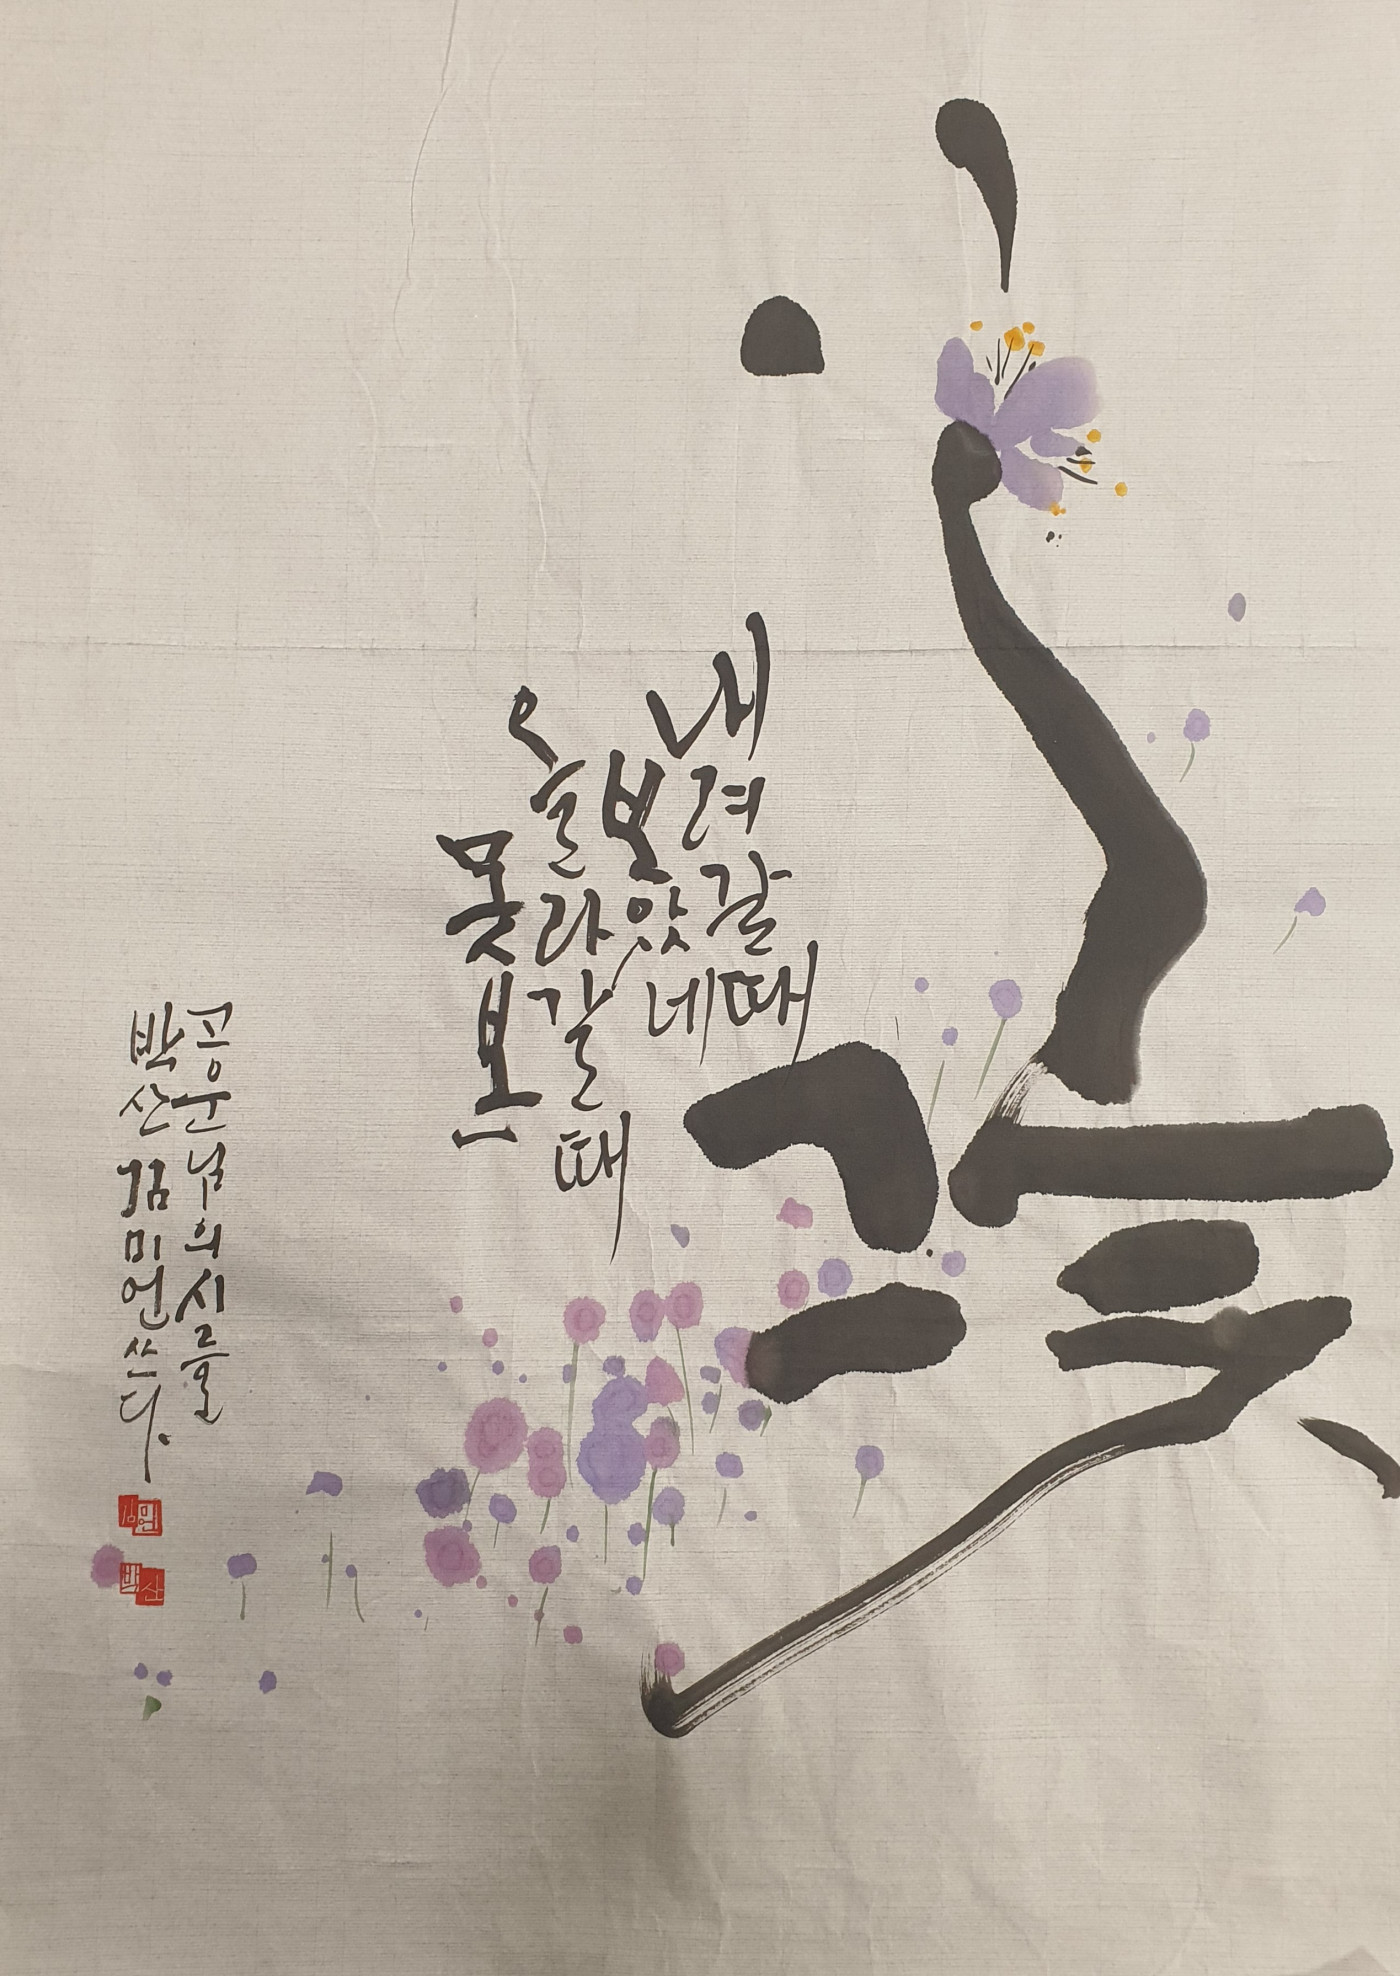 내려갈때
보았네
올라갈때
못본
그
꽃
고운님의시를
박산김미언쓰다.